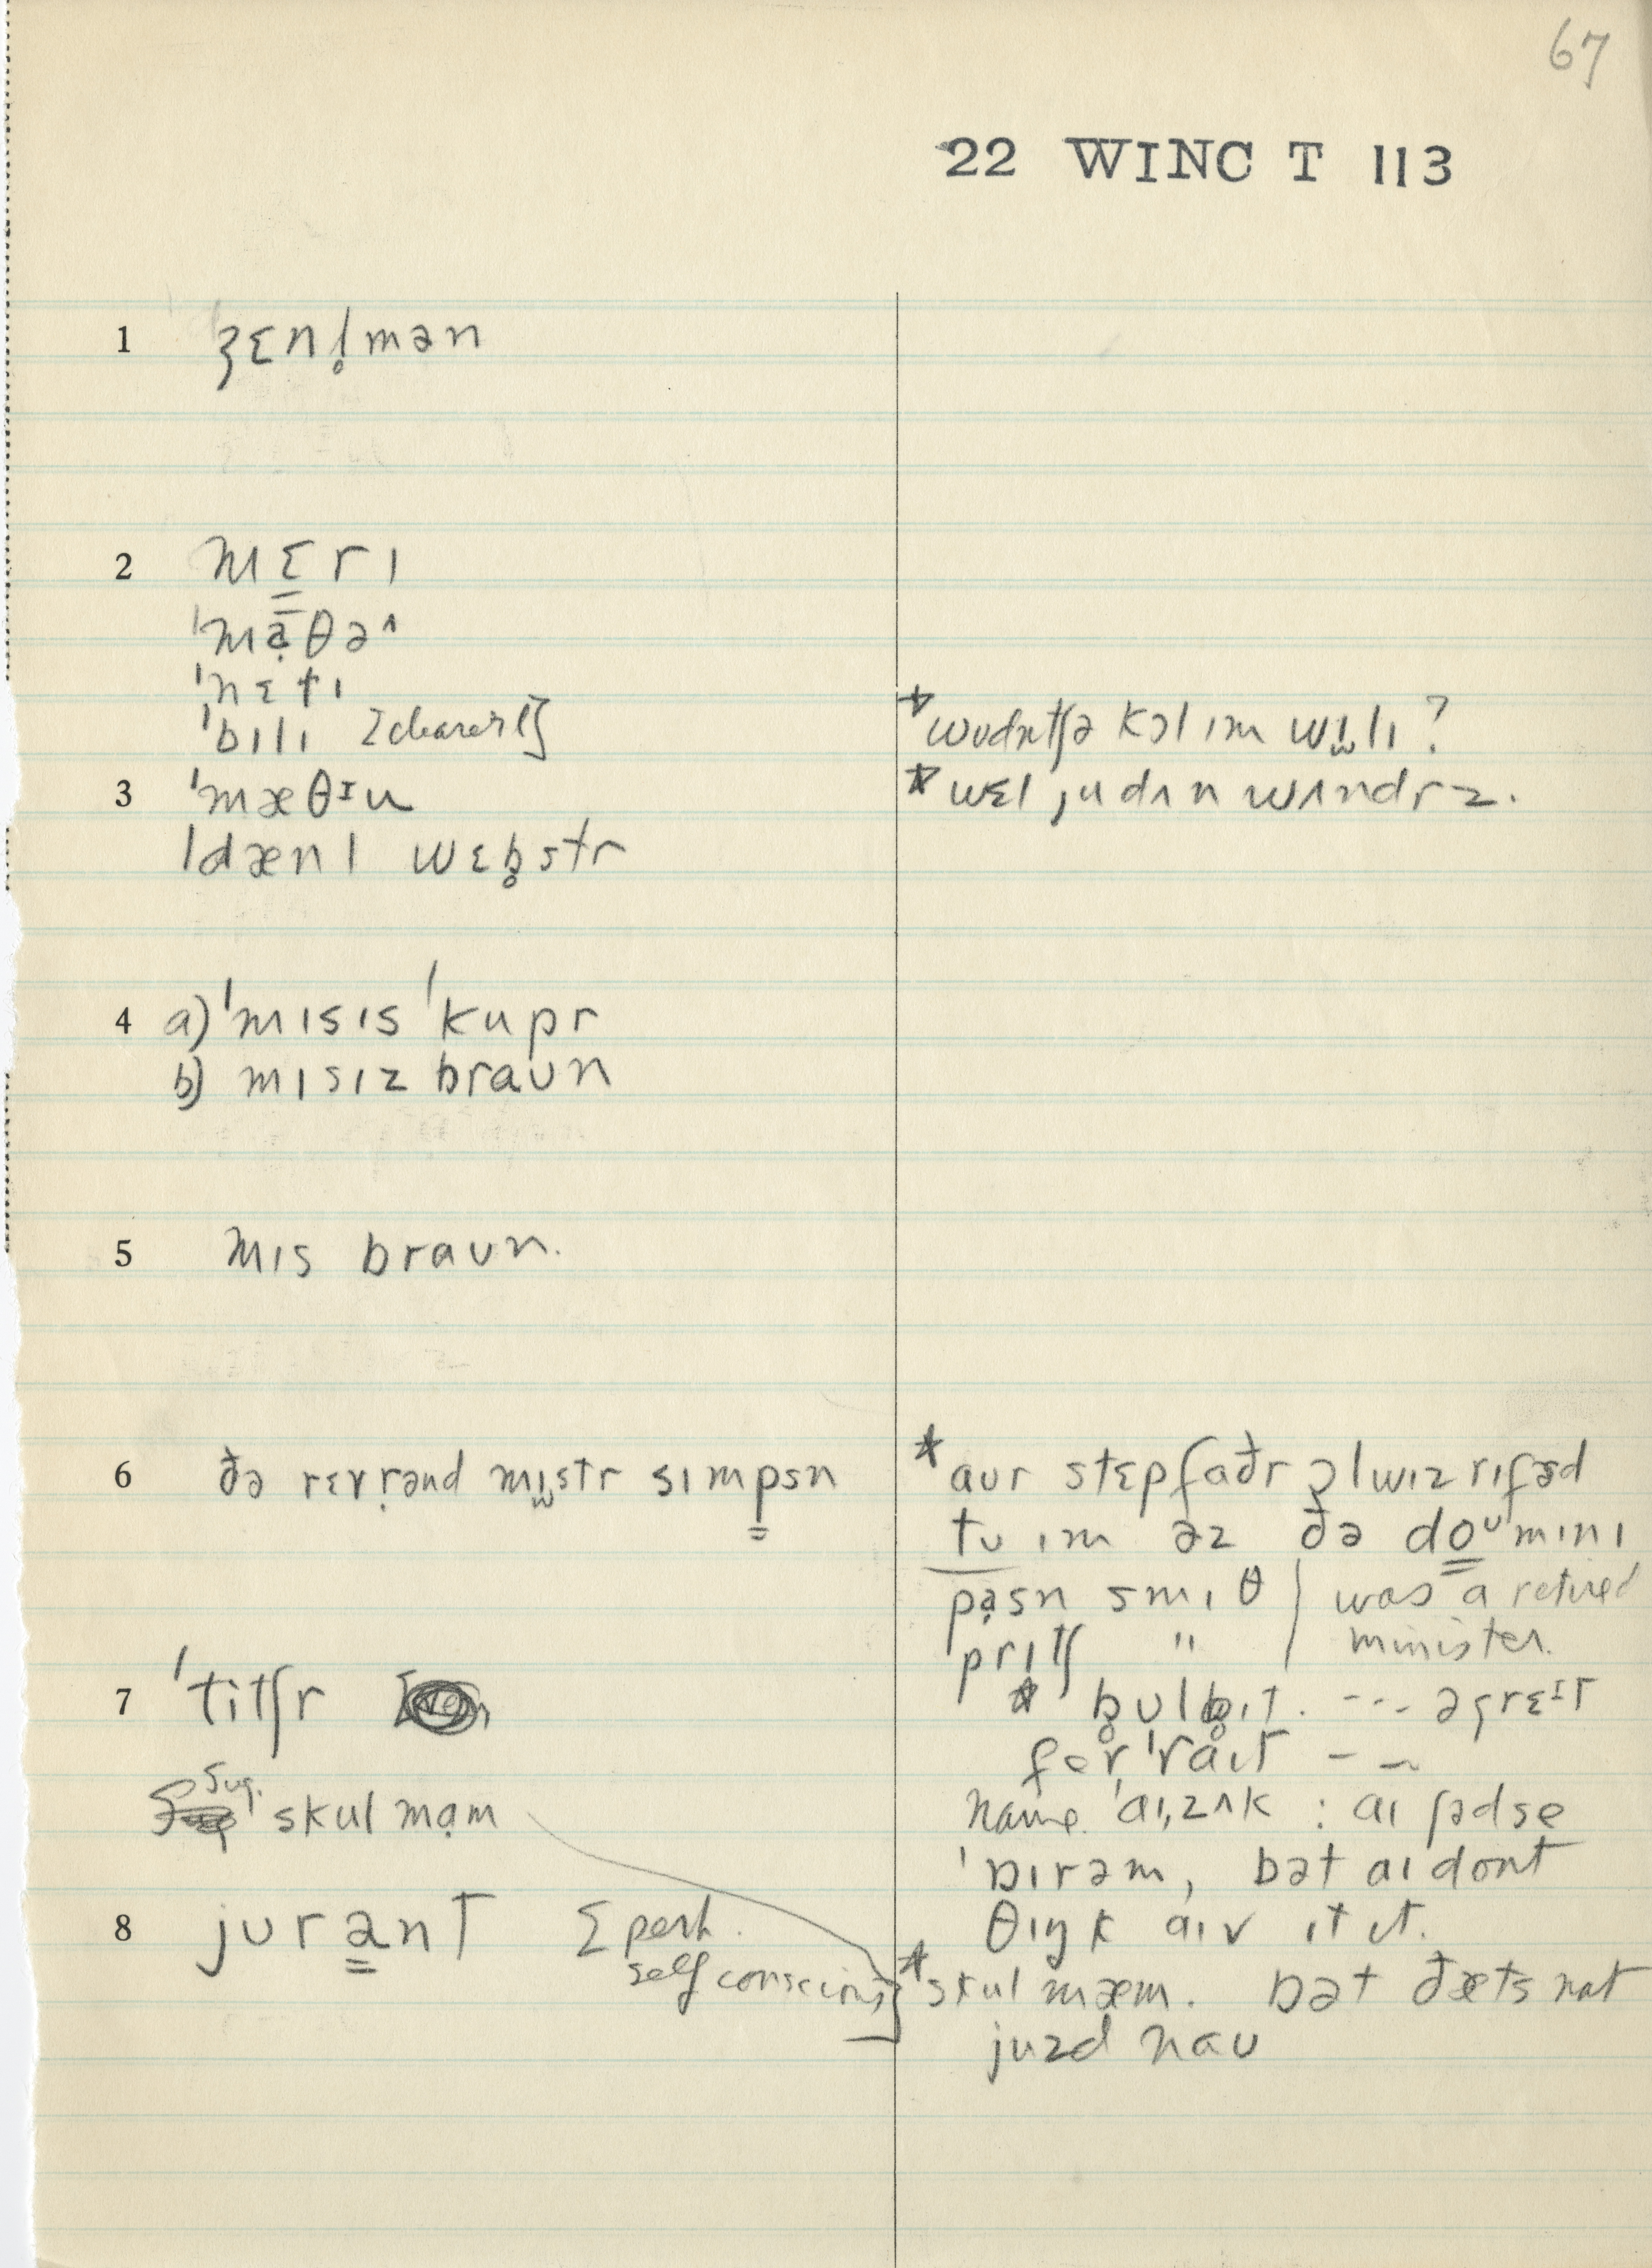 67
22 WINC T 113
1 ʒɛnl̥mən
2 mɛ̳rɪ
ˈmạ̄θə^
ˈnɛtɪ
ˈbɪlɪ [clearer l]
3 ˈmæθᶦu
ˈdænl wɛb̥str
4 a) ˈmɪsɪs ˈkupr
b) mɪsɪz braʊn
5 mɪs braʊn.
6 ðə rɛvrənd mɪstr sɪmp̳sn
7 ˈtitʃr
sug. skul mạm
8 jʊrə̳nt [perh.
self conscious]
* wʊdntʃə kɔl ɪm wɪlɪ ?
* wɛl, ju dʌn wʌndrz.
* aʊr stɛpfaðr ɔlwɪz rɪfəd
tʊ ɪm əz ðə do̳ᶷmɪnɪ
pạsn smɪθ | was a retired
pritʃ " | minister.
* b̥ʊlb̥ɪt. --- əgrɛᶦt
fər ˈraɪt – –
name. ˈaɪ,zʌk : aɪ ʃədse
ˈbɪrəm, bət aɪ dont
θɪŋk aɪv ɪt ɪt.
* skul mæm. bət ðæts nat
juzd naʊ